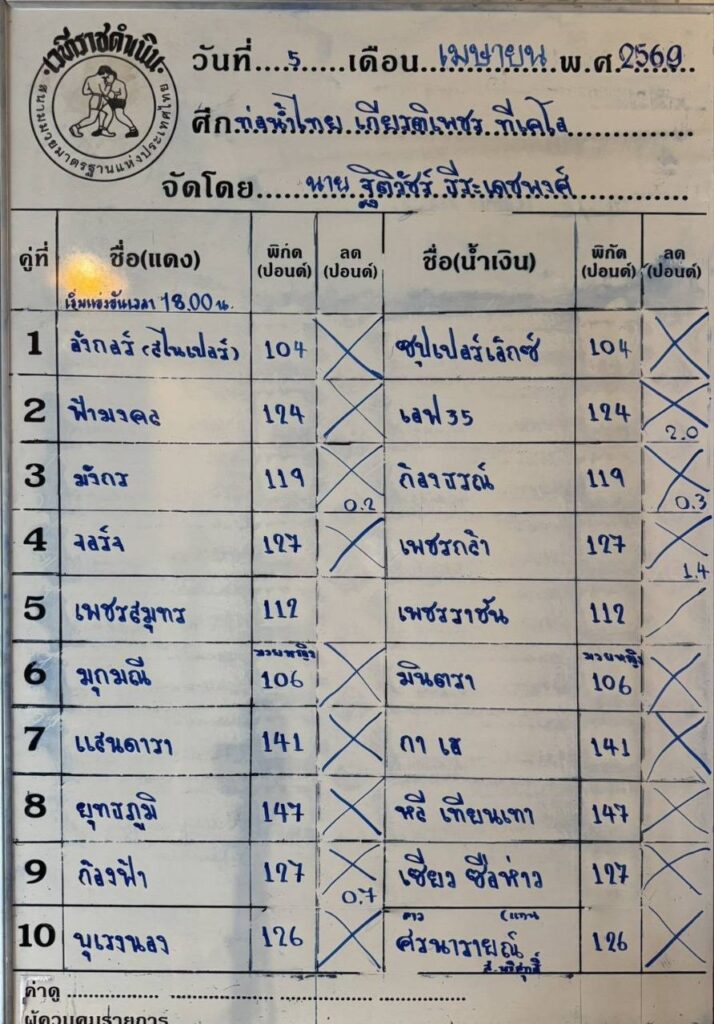 เวทีราชดำเนิน
สนามมวยมาตรฐานแห่งประเทศไทย
วันที่....5.....เดือน เมษายน พ.ศ.2569
ศึก ท่อน้ำไทย เกียรติเพชร ทีเคโอ
จัดโดย......นาย ฐิติวัชร์ ธีระเดชพงศ์
คู่ที่ ชื่อ(แดง) พิกัด (ปอนด์) ลด (ปอนด์) ชื่อ(น้ำเงิน) พิกัด (ปอนด์) ลด (ปอนด์)
เริ่มแข่งขันเวลา 18.00 น.
1 อังกอร์ (สไนเปอร์) 104 ซุปเปอร์เล็กซ์ 104
2 ฟ้ามงคล 124 เอฟ 35 124 2.0
3 มังกร 119 0.2 ก้องธรณ์ 119 0.3
4 จอร์จ 127 เพชรกล้า 127 1.4
5 เพชรสมุทร 112 เพชรราชัน 112
มวยหญิง มวยหญิง
6 มุกมณี 106 มินตรา 106
7 แสนดารา 141 กา เฮ 141
8 ยุทธภูมิ 147 หลี เทียนเทา 147
9 ก้องฟ้า 127 0.7 เซียว ซือห่าว 127
10 บุเรงนอง 126 ศรนารายณ์ 126
(แทน
ค่าดู
ผู้ควบคุมรายการ